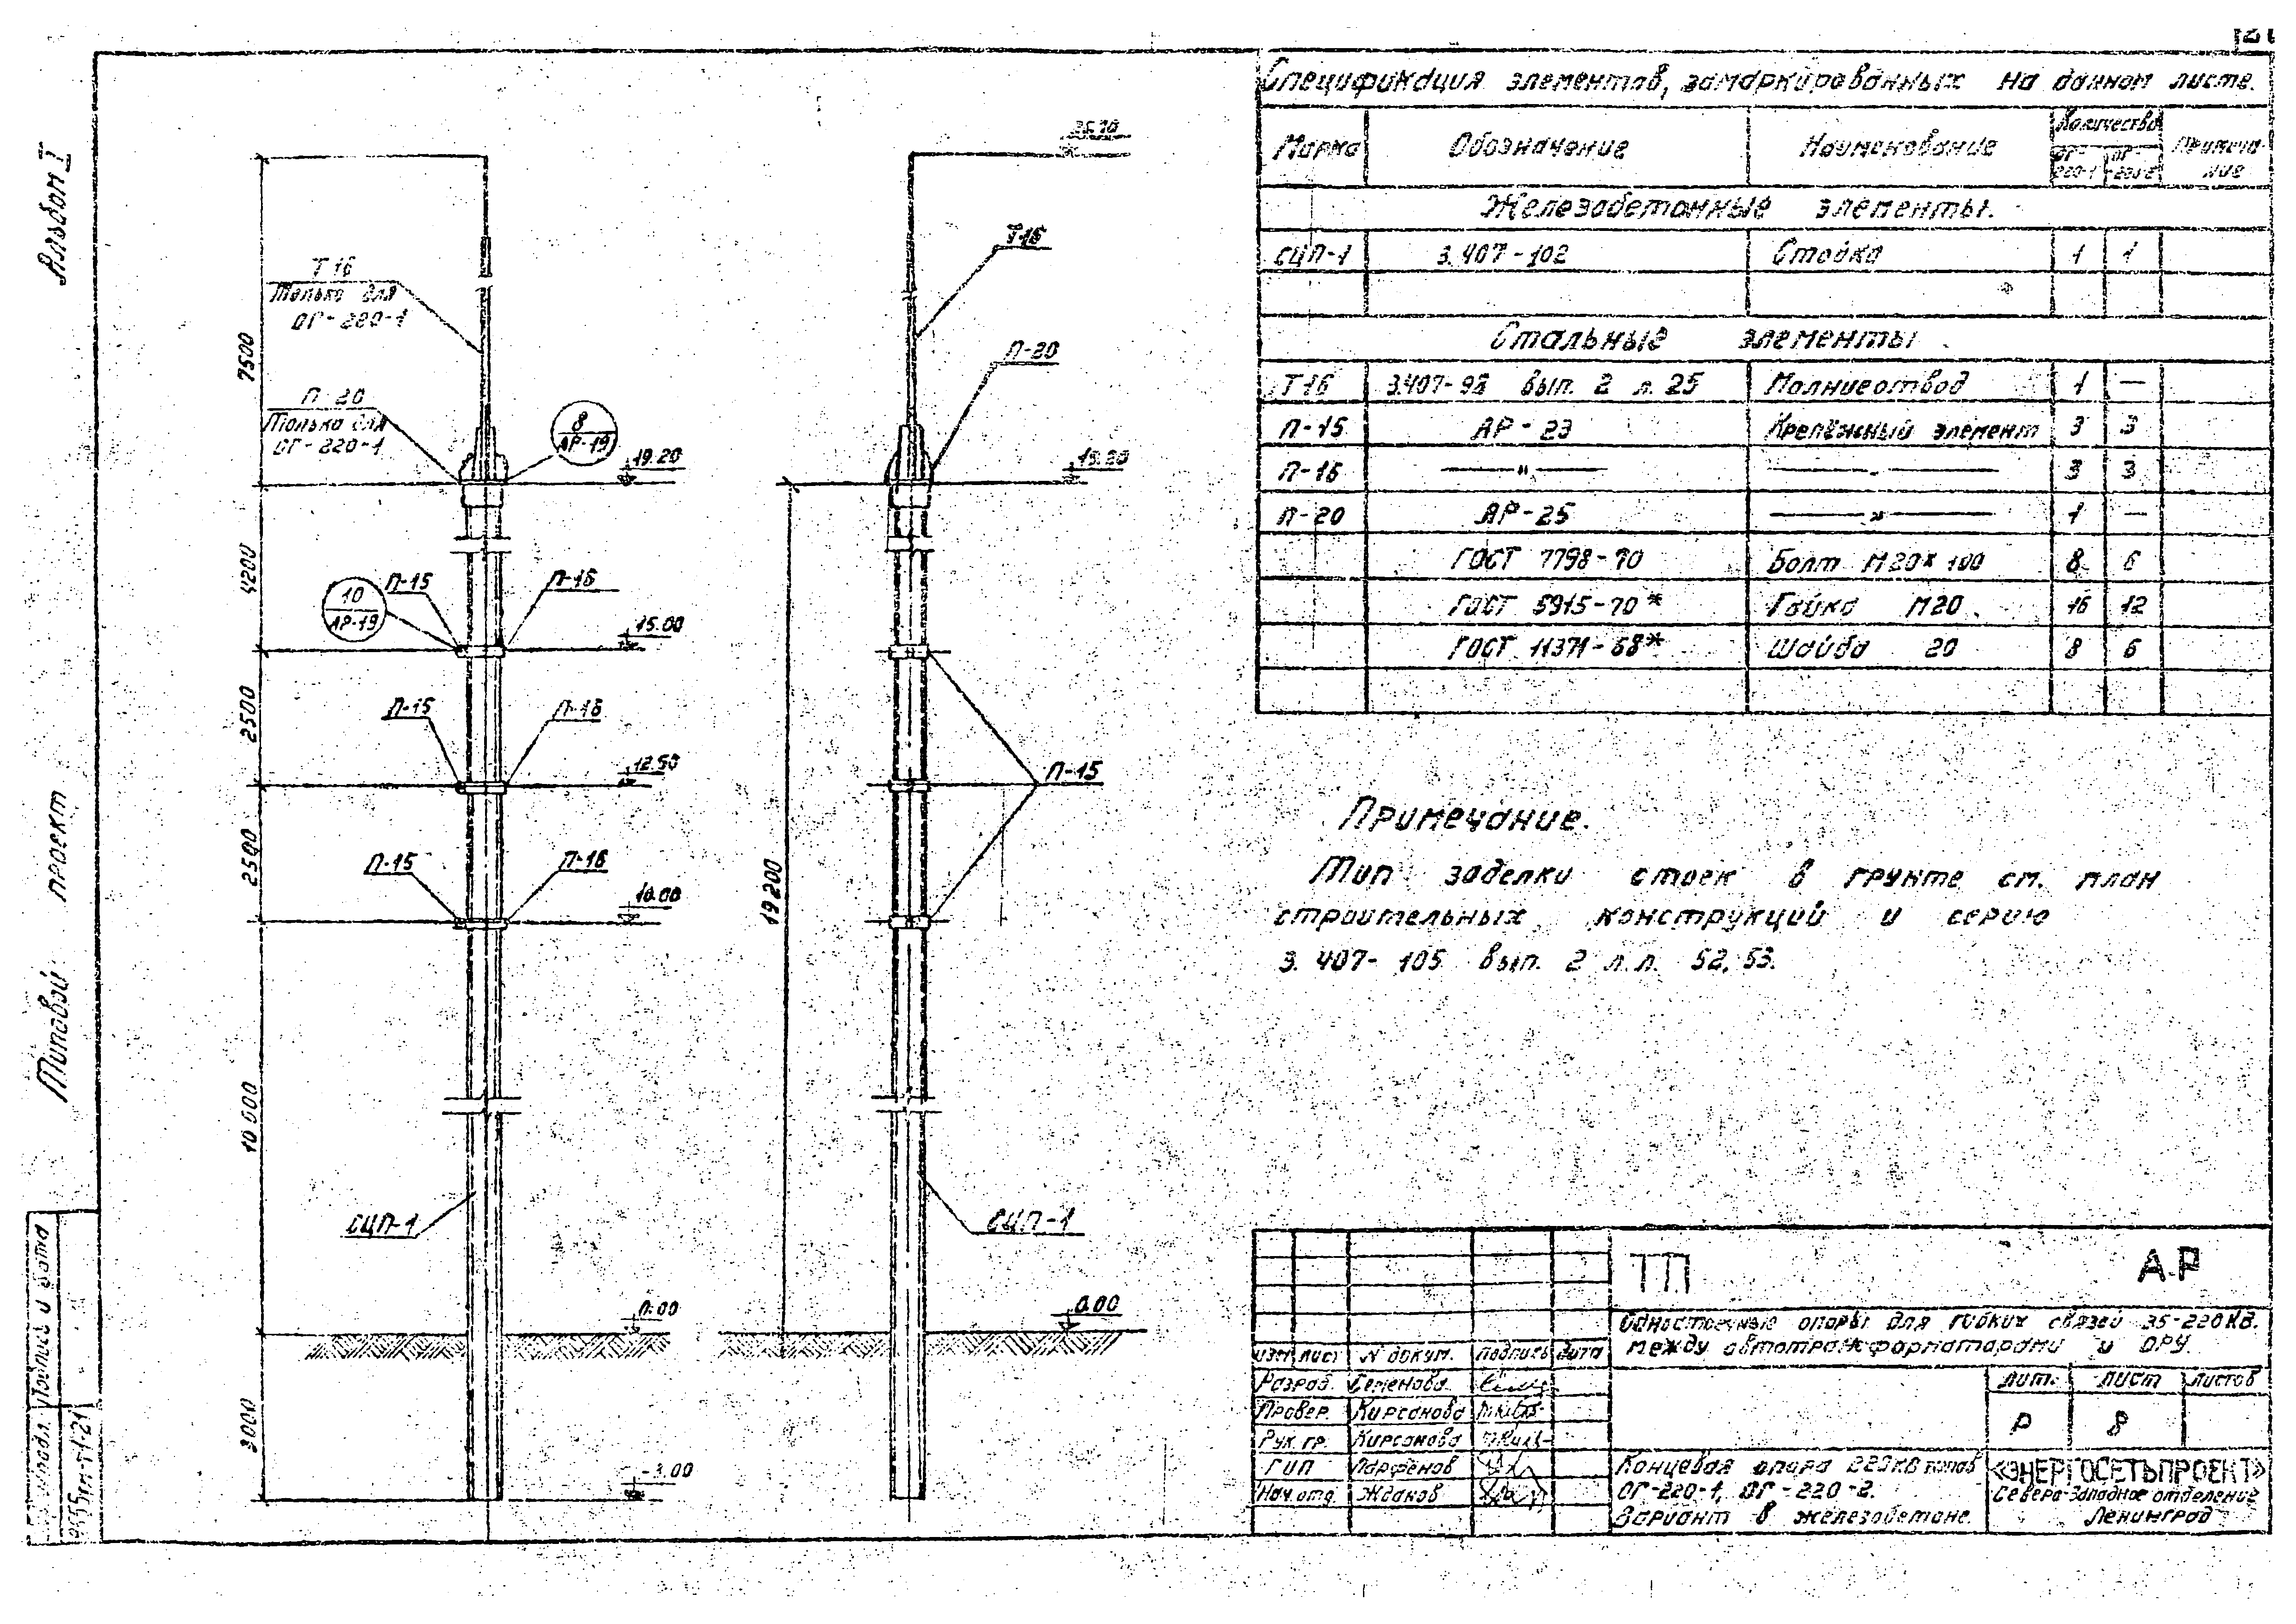 Альбом I
Типовой проект
Подпись и дата
7500
4200
2500
2500
10 000
3000
Т 16
Только для
ОГ-220-1
П-20
Только для
ОГ-220-1
8
АР-19
19.20
10
АР-19
П-15
П-16
15.00
П-15
П-16
12.50
П-15
П-16
10.00
СЦП-1
0.00
-3.00
26.70
Т-16
П-20
19.20
П-15
19200
СЦП-1
0.00
Спецификация элементов, замаркированных на данном листе.
Марка Обозначение Наименование Количество Примеча-
ние
ОГ-
220-1
ОГ-
220-2
Железобетонные элементы.
СЦП-1 3.407-102 Стойка 1 1
Стальные элементы
Т16 вып. 2 л. 25 Молниеотвод 1 —
П-15 АР-23 Крепёжный элемент 3 3
П-16 —"— —"— 3 3
П-20 АР-25 —"— 1 —
ГОСТ 7798-70 Болт М20х100 8 6
ГОСТ 5915-70* Гайка М20 16 12
ГОСТ 11371-68* Шайба 20 8 6
Примечание.
Тип заделки стоек в грунте см. план
строительных конструкций и серию
3.407-105 вып. 2 л.л. 52, 53.
ТП АР
Одностоечные опоры для гибких связей 35-220 кв.
между автотрансформаторами и ОРУ.
Изм лист N докум. подпись дата
Разраб. Семенова
Провер. Кирсанова
Рук. гр. Кирсанова
ГИП Парфенов
Нач. отд. Жданов
Лит. Лист Листов
Р 8
Концевая опора 220 кв типов
ОГ-220-1, ОГ-220-2.
Вариант в железобетоне.
«ЭНЕРГОСЕТЬПРОЕКТ»
Северо-Западное отделение
Ленинград